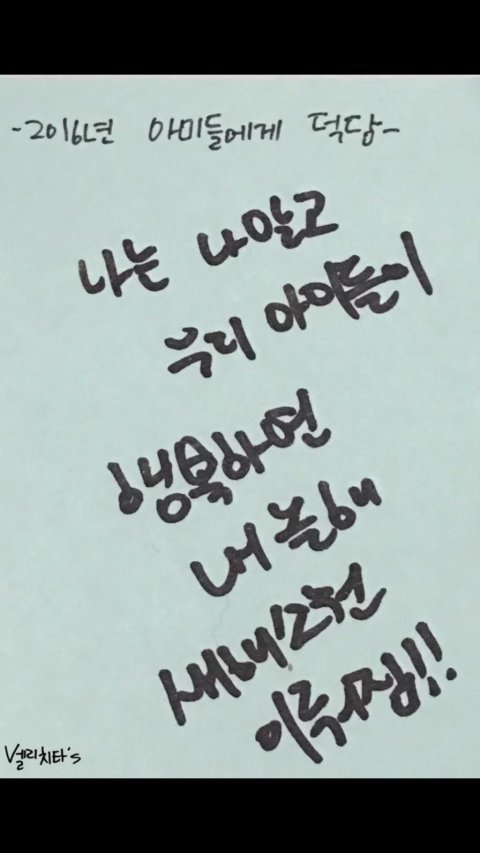 -2016년 아미들에게 덕담-
나는 나 말고
우리 아미들이
행복하면
내 올해
새해소원
이루어짐!!
벌리치타's